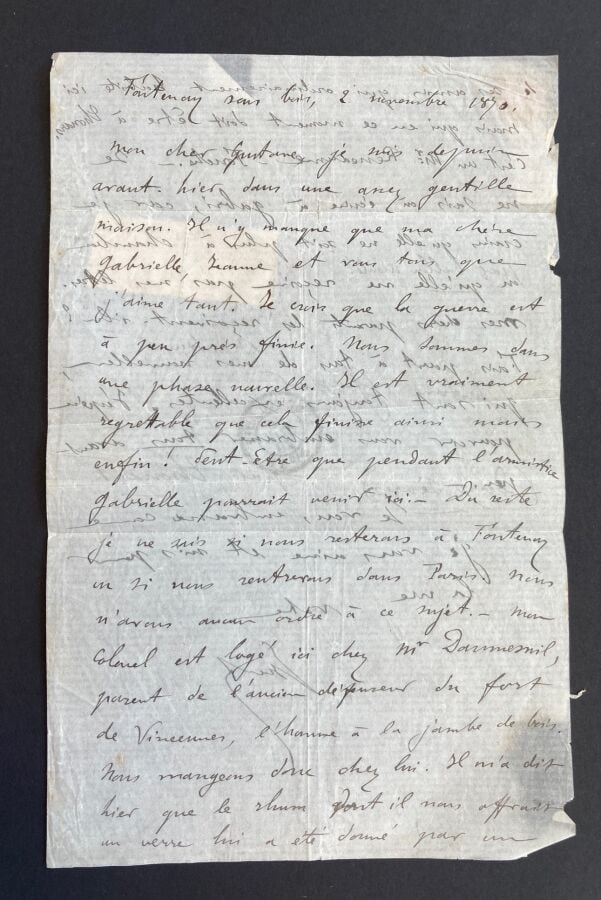 Fontenay sous bois, 2 novembre 1870.
Mon cher Gustave, je suis depuis
avant-hier dans une assez gentille
maison. Il n'y manque que ma chère
Gabrielle, Jeanne et vous tous que
j'aime tant. Je crois que la guerre est
à peu près finie. Nous sommes dans
une phase nouvelle. Il est vraiment
regrettable que cela finisse ainsi mais
enfin! Peut-Etre que pendant l'armistice
Gabrielle pourrait venir ici. - Du reste
je ne sais si nous resterons à Fontenay
ou si nous rentrerons dans Paris. Nous
n'avons aucun ordre à ce sujet. - Mon
Colonel est logé ici chez Mr Daumesnil,
parent de l'ancien défenseur du fort
de Vincennes, l'homme à la jambe de bois.
Nous mangeons donc chez lui. Il m'a dit
hier que le rhum dont il nous offrait
un verre lui a été donné par un